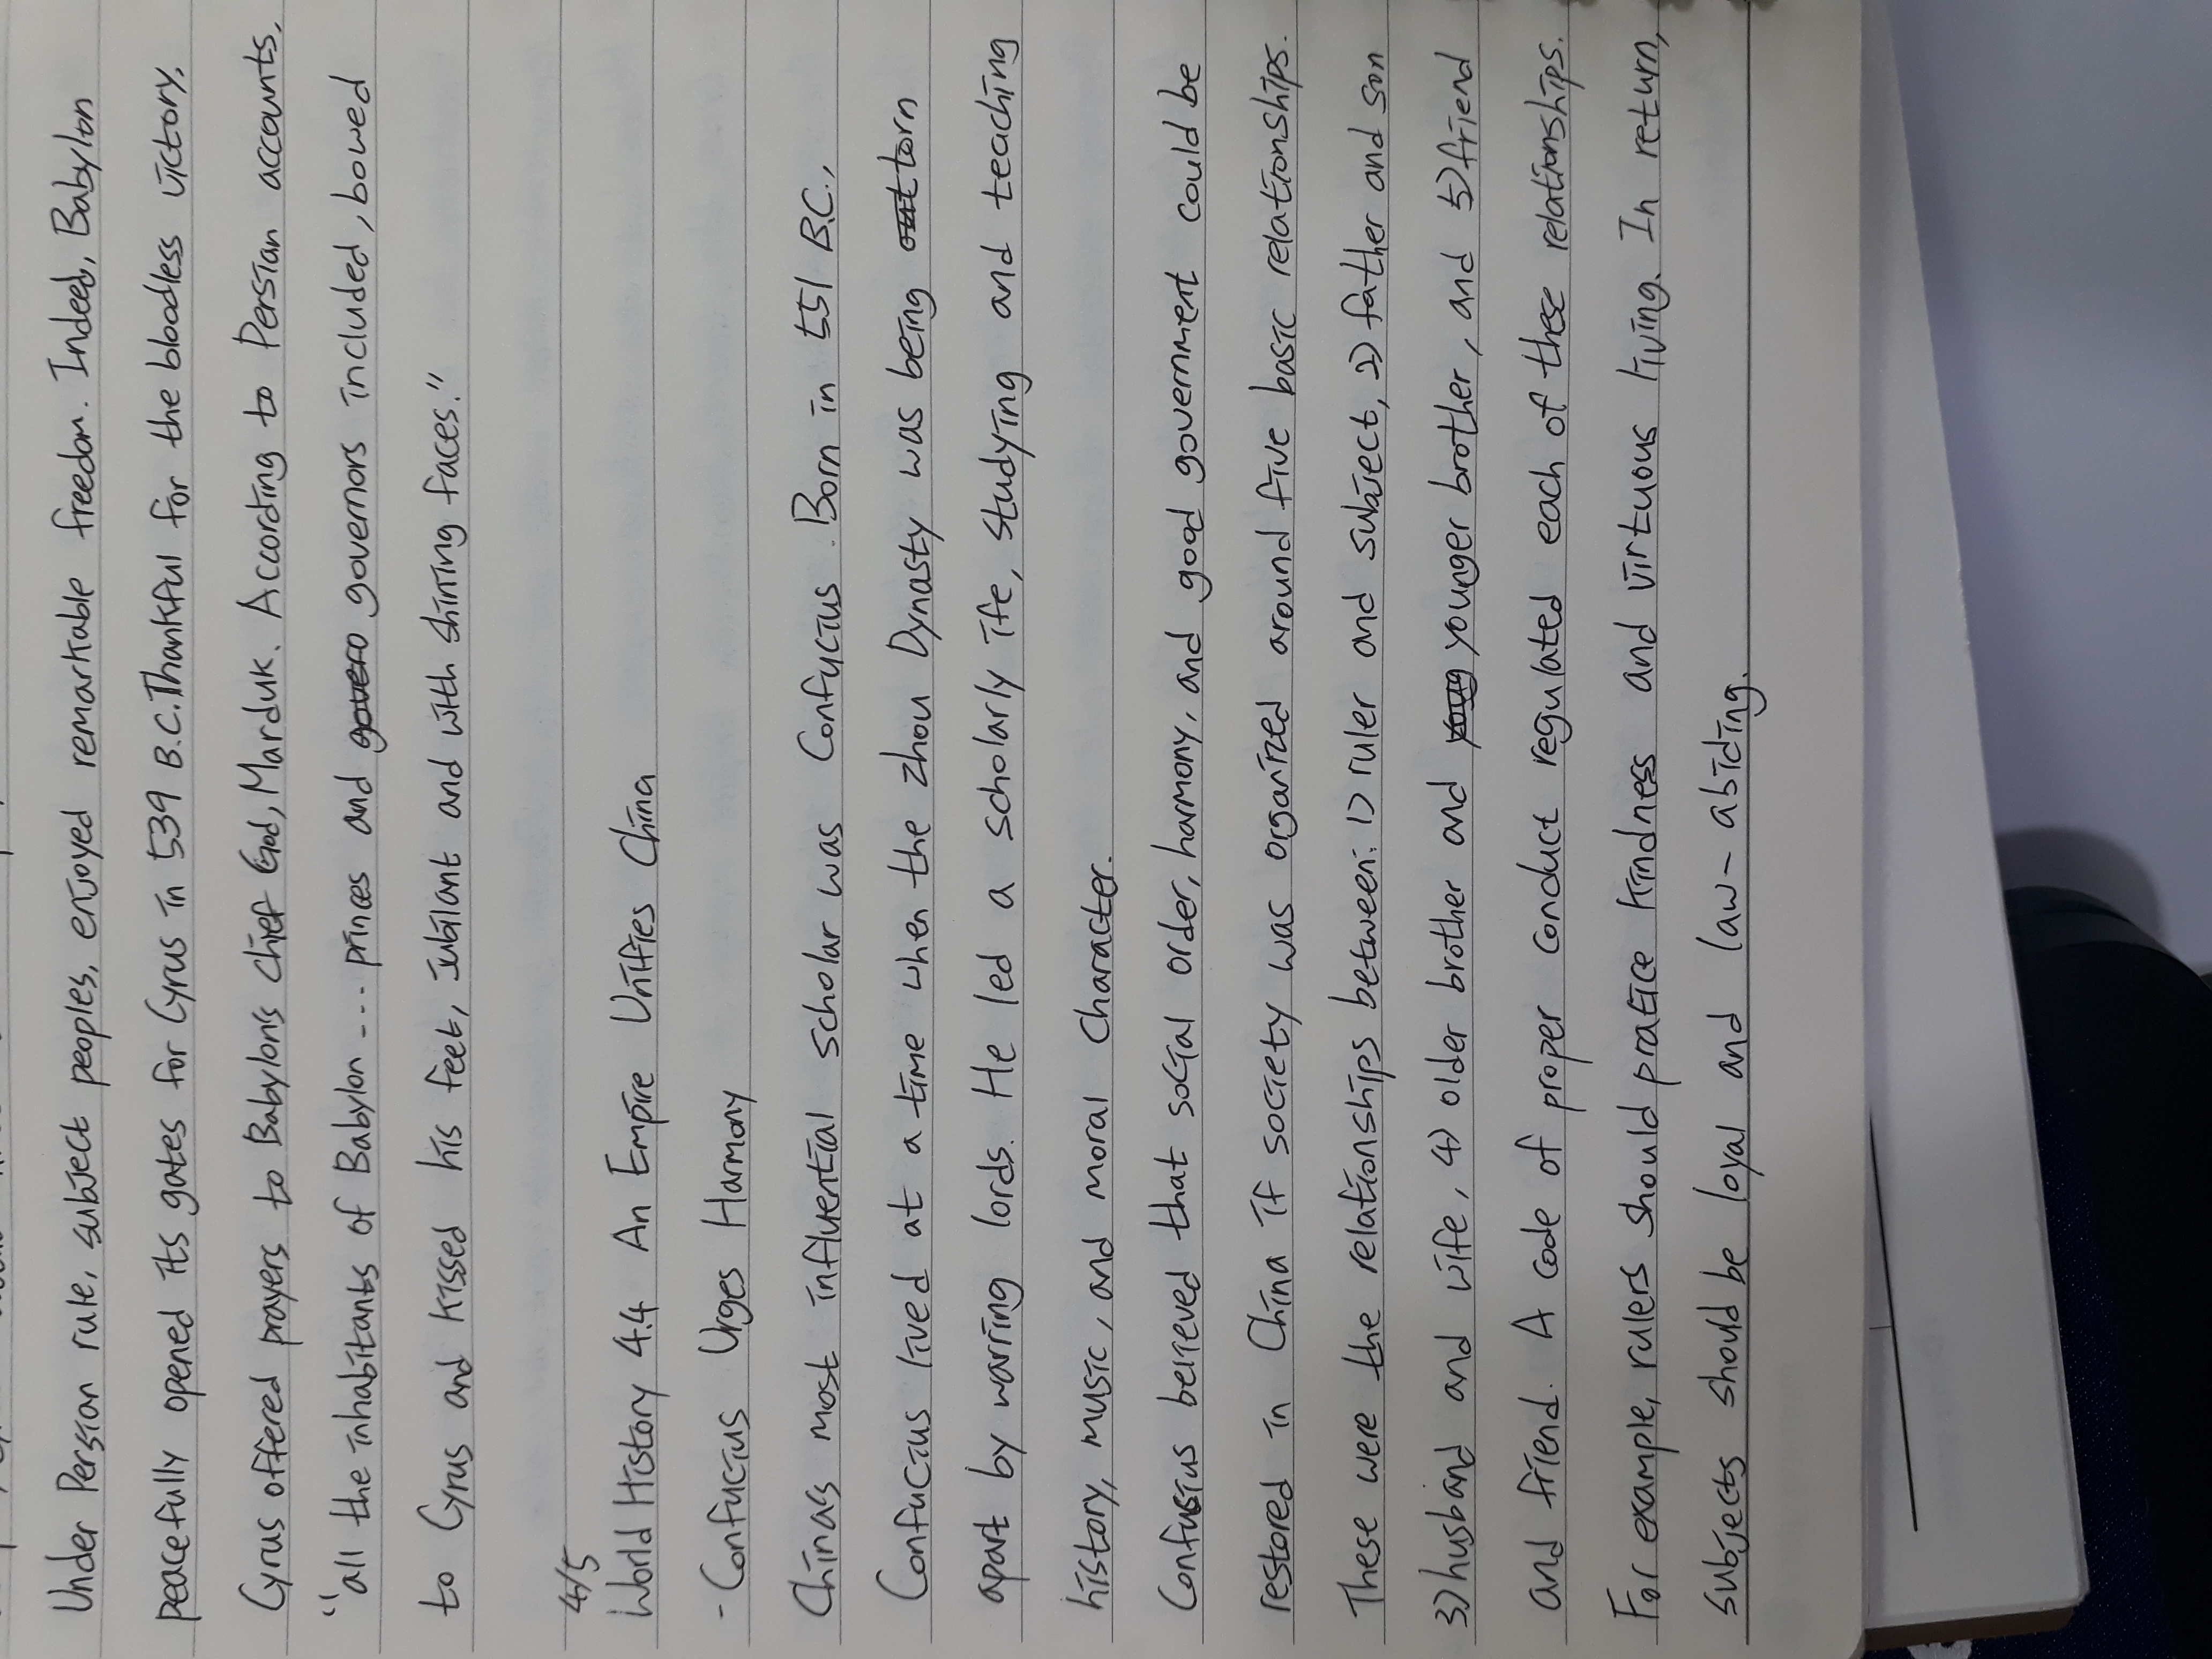 Under Persian rule, subject peoples, enjoyed remarkable freedom. Indeed, Babylon
peacefully opened its gates for Cyrus in 539 B.C. Thankful for the bloodless victory,
Cyrus offered prayers to Babylon's chief God, Marduk. According to Persian accounts,
"all the inhabitants of Babylon ---- princes and govero governors included, bowed
to Cyrus and kissed his feet, jubilant and with shining faces."
4/5
World History 4.4 An Empire Unifies China
- Confucius Urges Harmony
China's most influential scholar was Confucius. Born in 551 B.C.,
Confucius lived at a time when the Zhou Dynasty was being out torn
apart by warring lords. He led a scholarly ife, studying and teaching
history, music, and moral character.
Confusius believed that social order, harmony, and good government could be
restored in China if society was organized around five basic relationships.
These were the relationships between: 1) ruler and subject, 2) father and son
3) husband and wife, 4) older brother and young younger brother, and 5) friend
and friend. A code of proper conduct regulated each of these relationships.
For example, rulers should pratice kindness and virtuous living. In return,
subjects should be loyal and law-abiding.